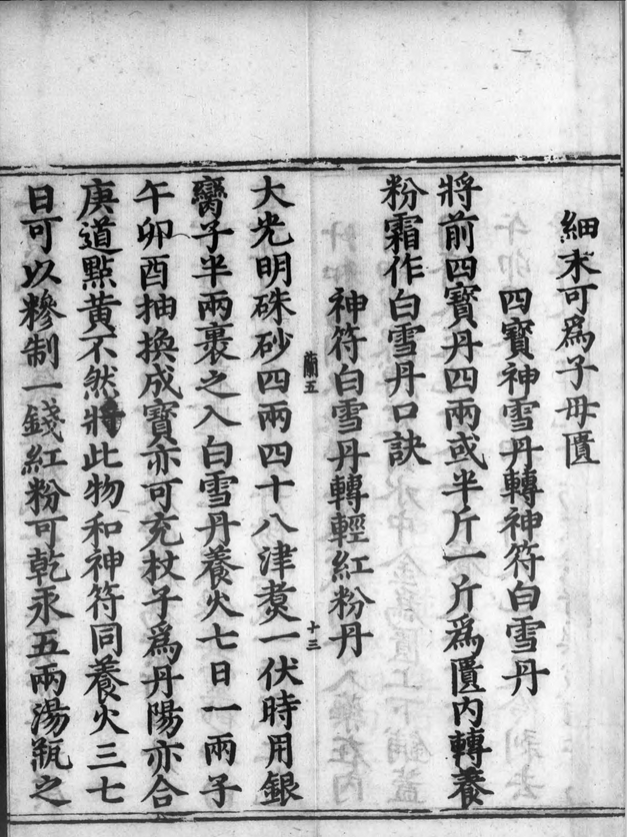 細末可爲子母匱
四寳神雪丹轉神符白雪丹
將前四寳丹四兩或半斤一斤爲匱内轉養
粉霜作白雪丹口訣
神符白雪丹轉輕紅粉丹
蘭五
十三
大光明硃砂四兩四十八津煑一伏時用銀
臠子半兩裹之入白雪丹養火七日一兩子
午卯酉抽換成寳亦可充杖子爲丹陽亦合
庚道點黃不然將此物和神符同養火三七
日可以糝制一錢紅粉可乾汞五兩湯瓶之